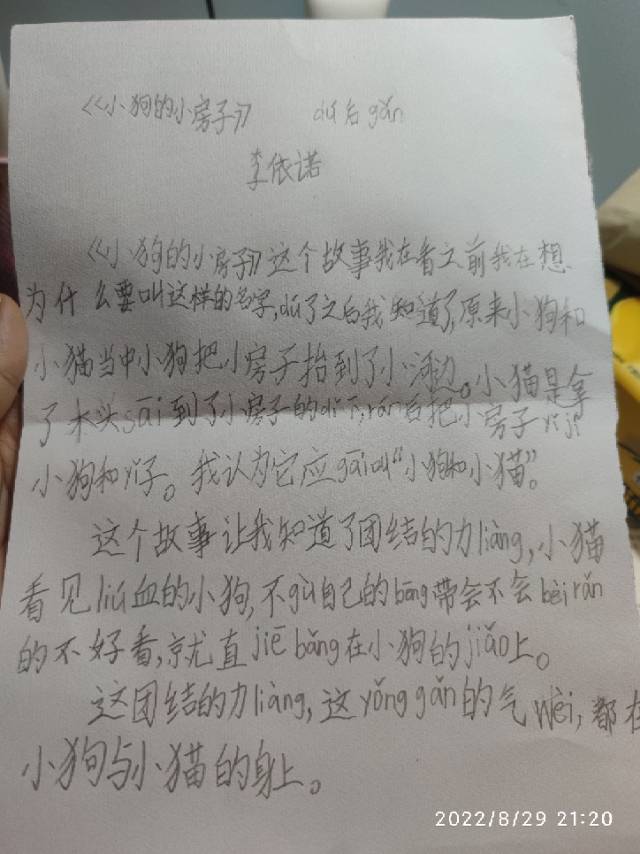 《小狗的小房子》 dú后gǎn
李依诺
《小狗的小房子》这个故事我在看之前我在想
为什么要叫这样的名字,dú了之后我知道了,原来小狗和
小猫当中小狗把小房子抬到了小河边。小猫是拿
了木头sāi到了小房子的dǐ,rán后把小房子yí
小狗和yǐ子。我认为它应gāi叫“小狗和小猫”。
这个故事让我知道了团结的力liàng,小猫
看见liú血的小狗,不gù自己的bāng带会不会bèi rǎn
的不好看,就直jiē bǎng在小狗的jiǎo上。
这团结的力liàng,这yǒng gǎn的气wèi,都在
小狗与小猫的身上。
2022/8/29 21:20